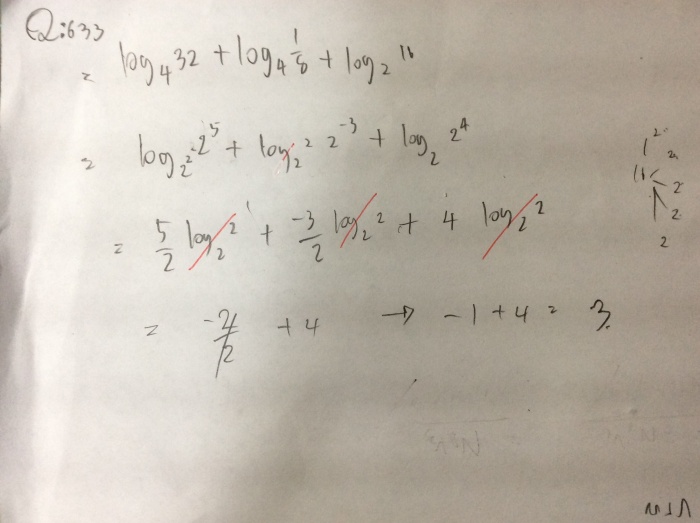 Q:633
= log₄32 + log₄ 1/8 + log₂ 16
= log₂² 2⁵ + log₂² 2⁻³ + log₂ 2⁴
= 5/2 log₂ 2 1 + -3/2 log₂ 2 + 4 log₂ 2
= -2/2 + 4 → -1 + 4 = 3